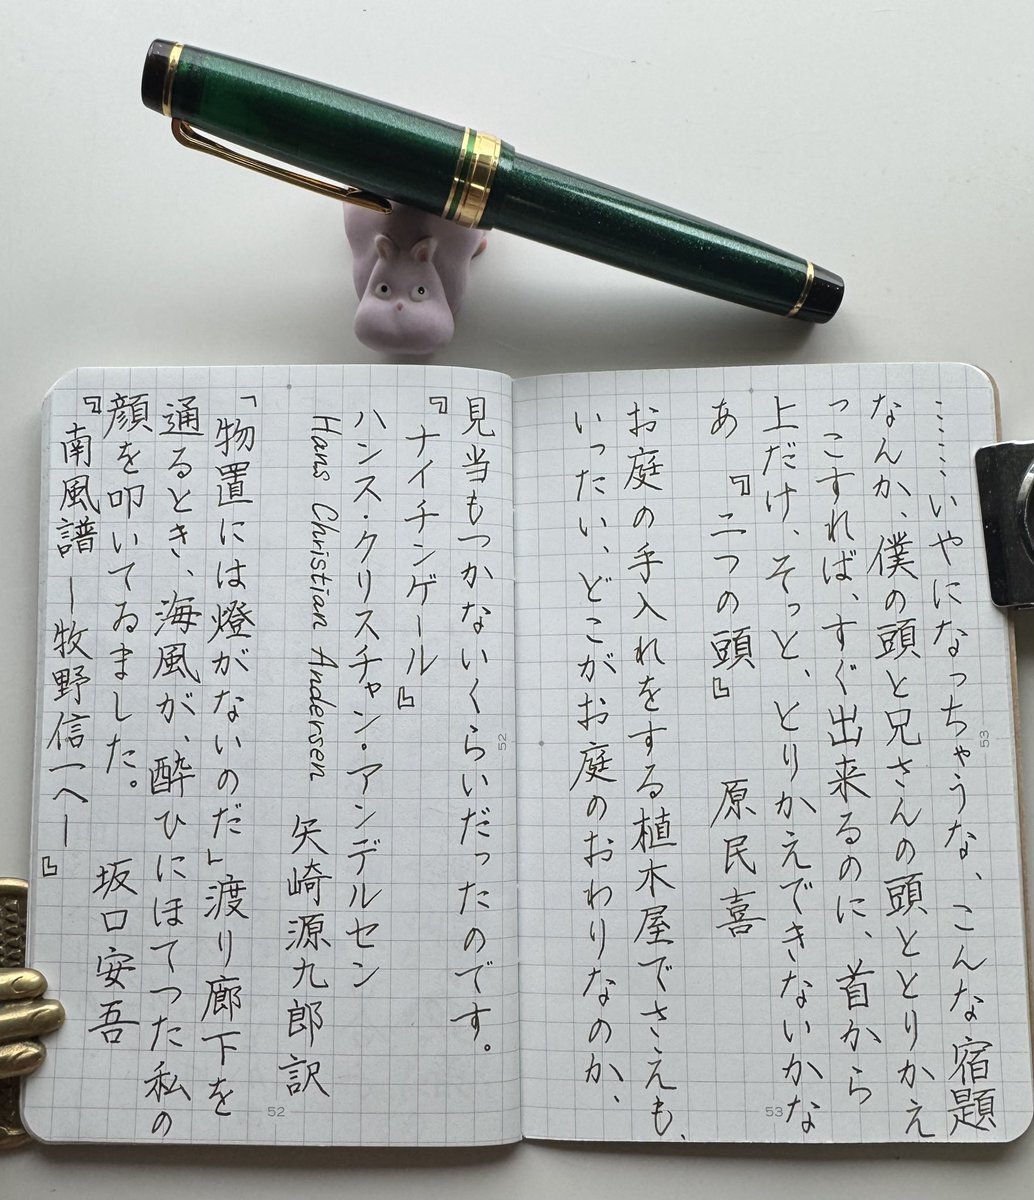 ……いやになっちゃうな、こんな宿題
なんか、僕の頭と兄さんの頭ととりかえ
っこすれば、すぐ出来るのに、首から
上だけ、そっと、とりかえできないかな
あ 『二つの頭』 原民喜
お庭の手入れをする植木屋でさえも、
いったい、どこがお庭のおわりなのか、
見当もつかないくらいだったのです。
『ナイチンゲール』
ハンス・クリスチャン・アンデルセン
Hans Christian Andersen 矢崎源九郎訳
「物置には燈がないのだ」渡り廊下を
通るとき、海風が、酔ひにほてつた私の
顔を叩いてゐました。 坂口安吾
『南風譜 ー牧野信一へー』
53
53
52
52